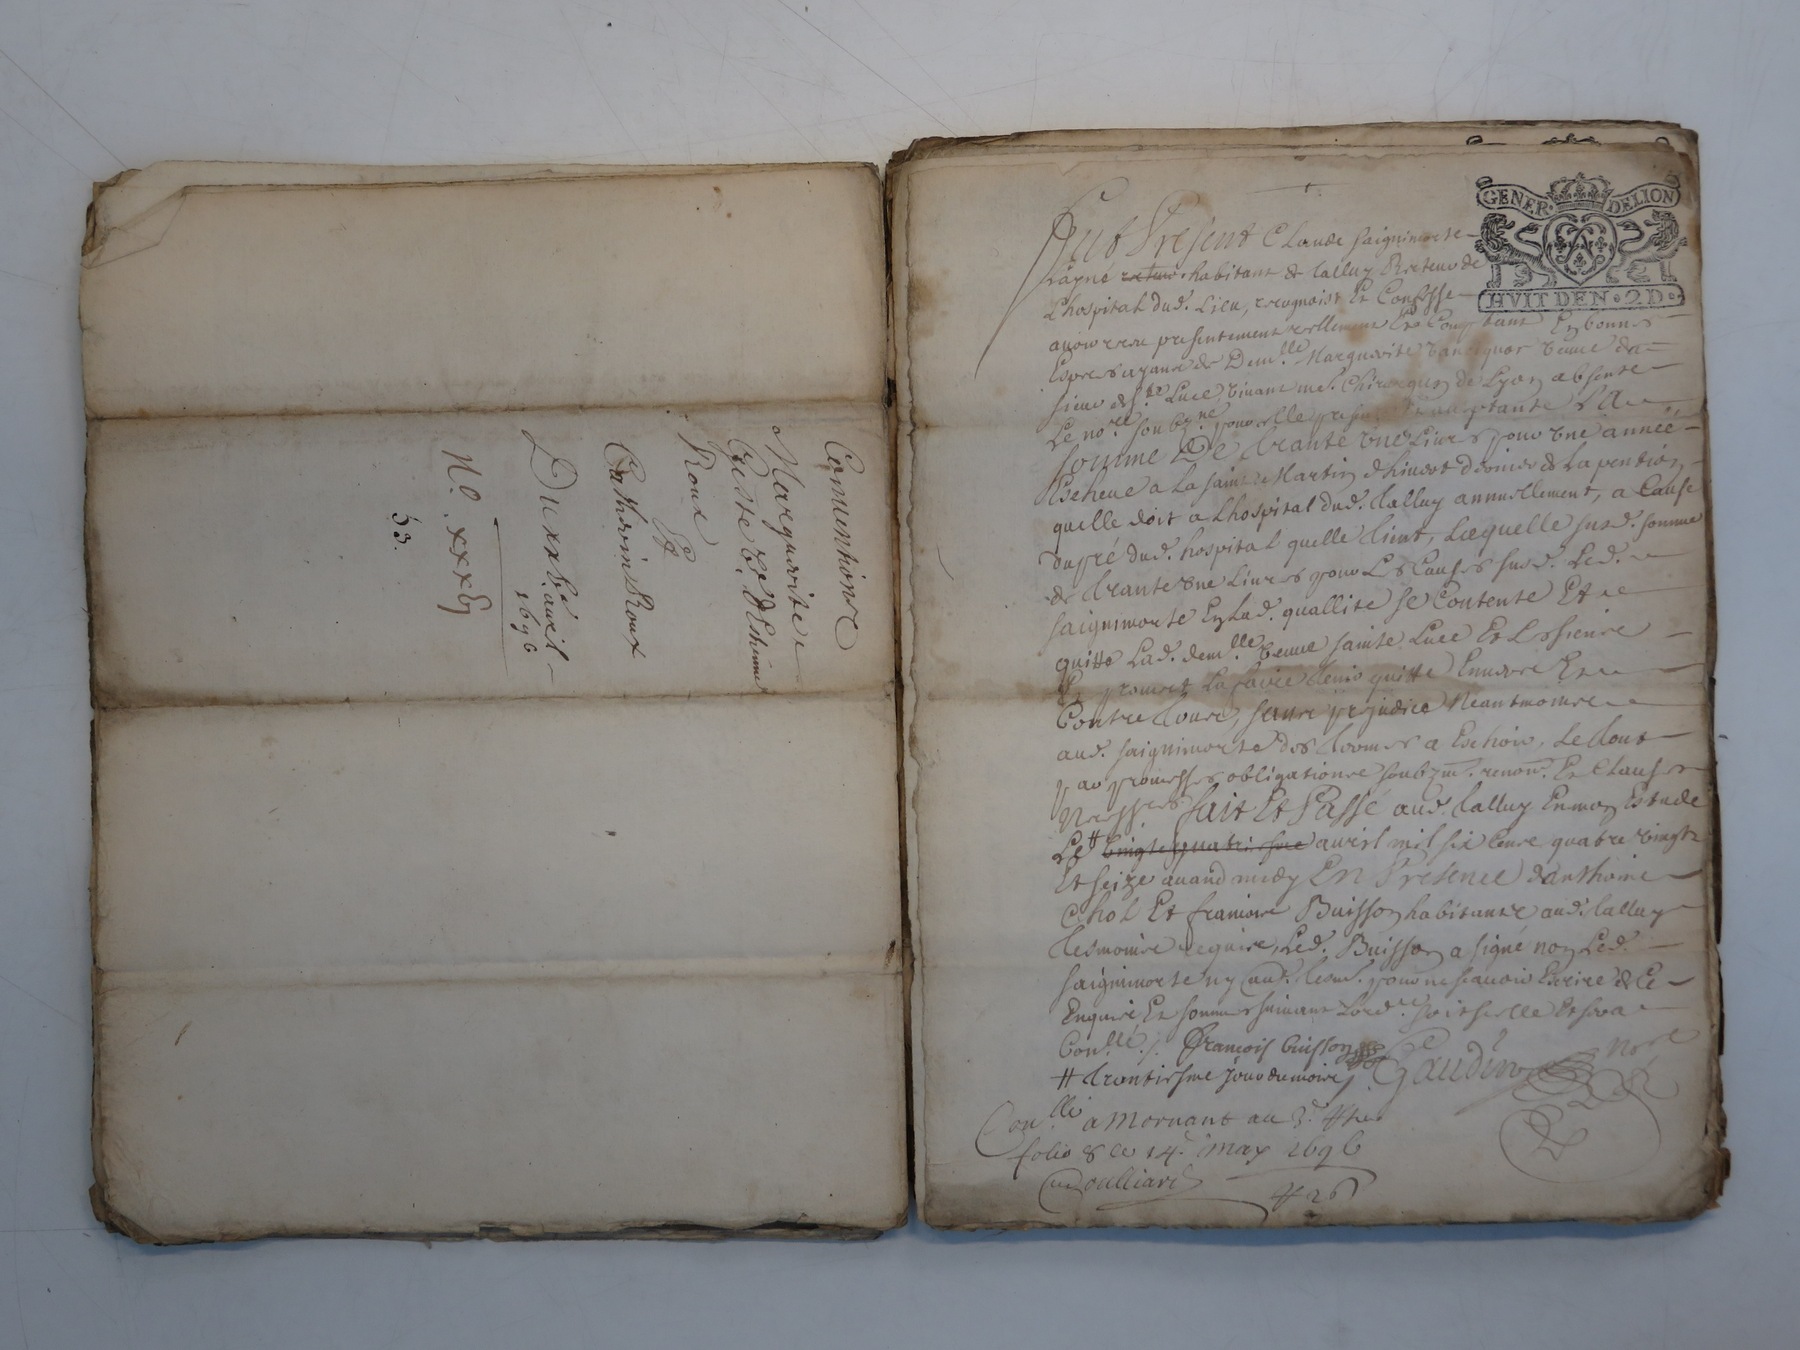 Conventions
Marguerite
Teste Ve. d'Estienne
Roux
Et
Catherin Roux
Du xxbe. auril
1696
No. xxxE
53.
GENER. DELION
HVIT DEN. 2 D.
Fut Présent Claude saignimorte
Layné habitant de Talluy Recteur de
Lhospital dud. Lieu, recognoist Et Confesse
auoir receu presentement reellement Et Comptant En bonnes
Especes ayant de Demlle Marguerite veuue de
sieur de Ste Luce, viuant me. Chirurgien de Lyon absente
Le nore. soubzne pour elle present Et acceptante La
somme De trante une Liures pour une année
Escheue a La saint Martin d'hiuert dernier de La pention
quelle doit a Lhospital dud. Talluy annuellement, a Cause
du pré dud. hospital quelle tient, Laquelle susd. somme
de trante une Liures pour Les Causes susd. Led.
saignimorte En Lad. quallite se Contente Et
quitte Lad. demlle veuue sainte Luce Et Les siens
Et promet La faire tenir quitte Enuers Et
Contre tous, sans prejudice Neantmoins
aud. saignimorte des termes a Eschoir, Le tout
par promesses obligations soubzm. renon. Et Clauses
Necess.res fait Et Passé aud. Talluy En mon Estude
Le # vingt quatriesme auril mil six Cens quatre vingts
Et seize auand midy En Presence d'anthoine
Chol Et francois Buisson habitants aud. Talluy
tesmoins requis, Led. Buisson a signé non Led.
saignimorte ny Laut. tesm. pour ne scauoir Escrire de Ce
Enquis Et sommes suiuant Lord.ce soit scelle Et sera
Con.llé ./. francois buisson Gaudin nore
# trantiesme jour du mois
Con.llé a Mornant au 3e.
folio 8 Le 14e. may 1696